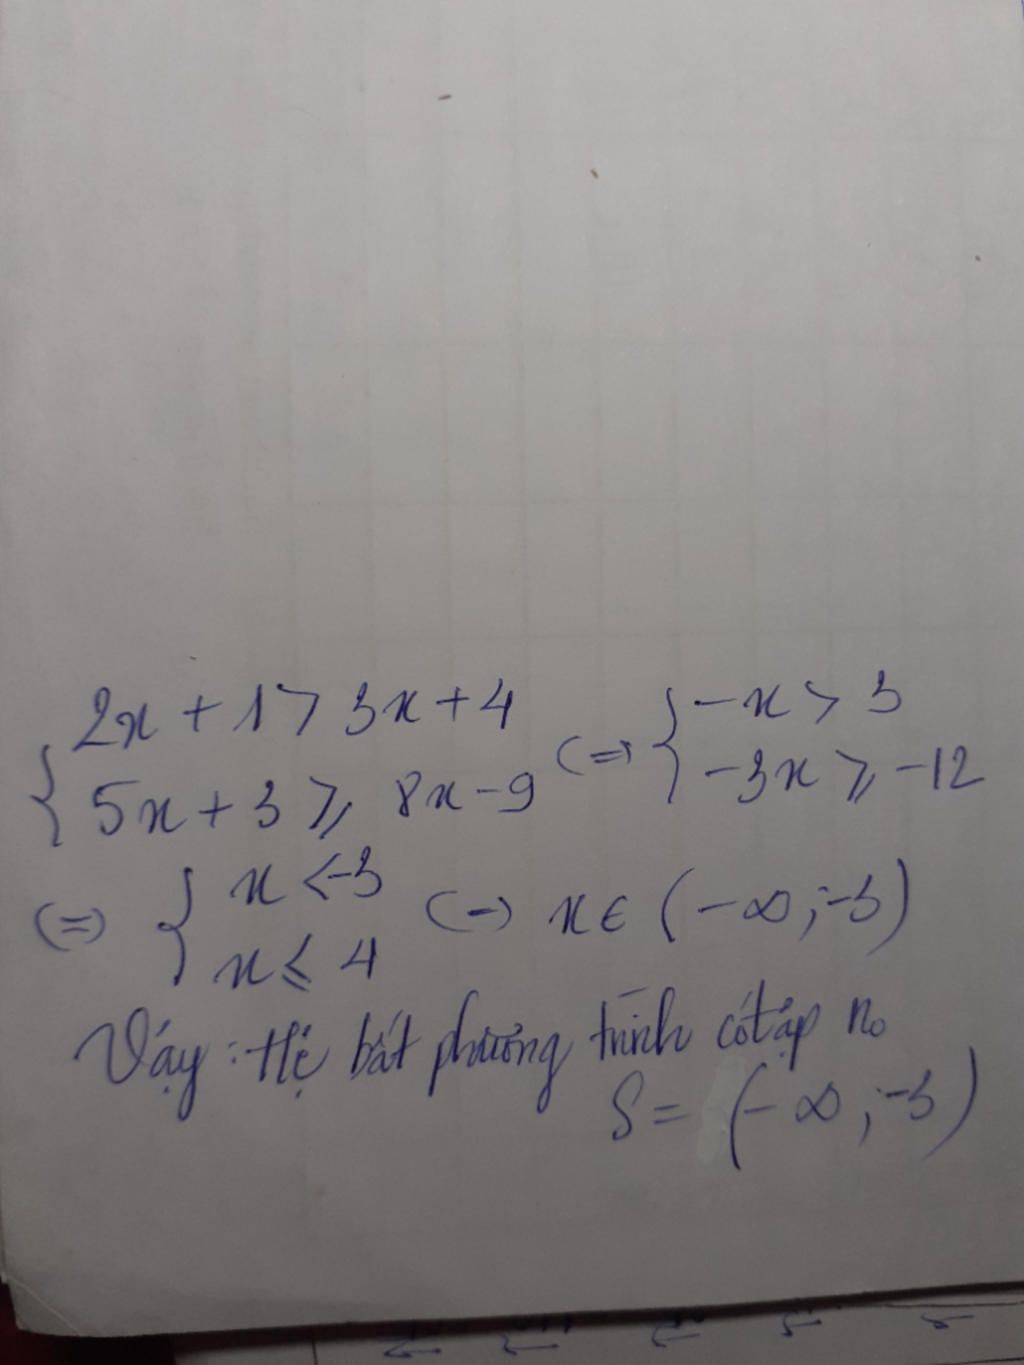 { 2x + 1 > 3x + 4 (=) { -x > 3
5x + 3 ⩾ 8x - 9 -3x ⩾ -12
(=) { x < -3 (=) x ∈ (-∞ ; -3)
x ⩽ 4
Vậy : Hệ bất phương trình có tập no
S = (-∞ ; -3)